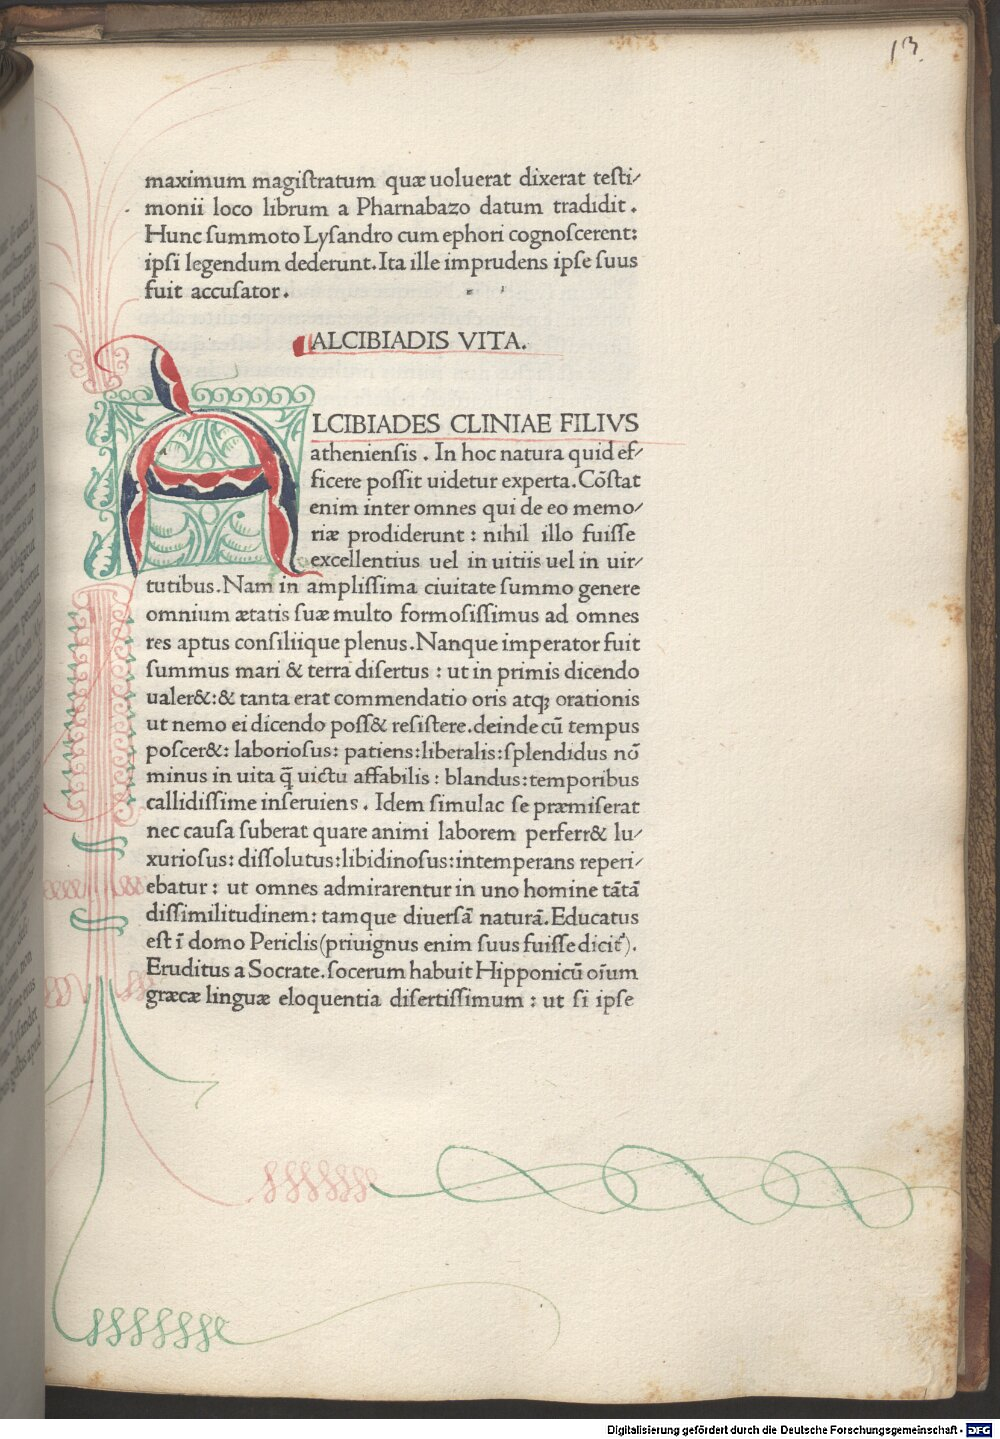 13.
maximum magiſtratum quæ uoluerat dixerat teſti⸗
monii loco librum a Pharnabazo datum tradidit .
Hunc ſummoto Lyſandro cum ephori cognoſcerent:
ipſi legendum dederunt. Ita ille imprudens ipſe ſuus
fuit accuſator .
ALCIBIADIS VITA.
ALCIBIADES CLINIAE FILIVS
athenienſis . In hoc natura quid ef⸗
ficere poſſit uidetur experta. Cõſtat
enim inter omnes qui de eo memo⸗
riæ prodiderunt : nihil illo fuiſſe
excellentius uel in uitiis uel in uir⸗
tutibus. Nam in ampliſſima ciuitate ſummo genere
omnium ætatis ſuæ multo formoſiſſimus ad omnes
res aptus conſiliique plenus. Nanque imperator fuit
ſummus mari & terra diſertus : ut in primis dicendo
ualer&: & tanta erat commendatio oris atq; orationis
ut nemo ei dicendo poſſ& reſiſtere. deinde cū tempus
poſcer&: laborioſus: patiens: liberalis: ſplendidus nō
minus in uita q̄ uictu affabilis : blandus: temporibus
callidiſſime inſeruiens . Idem ſimulac ſe præmiſerat
nec cauſa ſuberat quare animi laborem perferr& lu⸗
xurioſus: diſſolutus: libidinoſus: intemperans reperi⸗
ebatur : ut omnes admirarentur in uno homine tātā
diſſimilitudinem: tamque diuerſā naturā. Educatus
eſt ī domo Periclis (priuignus enim ſuus fuiſſe dicit᷑).
Eruditus a Socrate. ſocerum habuit Hipponicū oīum
græcæ linguæ eloquentia diſertiſſimum : ut ſi ipſe
Digitalisierung gefördert durch die Deutsche Forschungsgemeinschaft - DFG